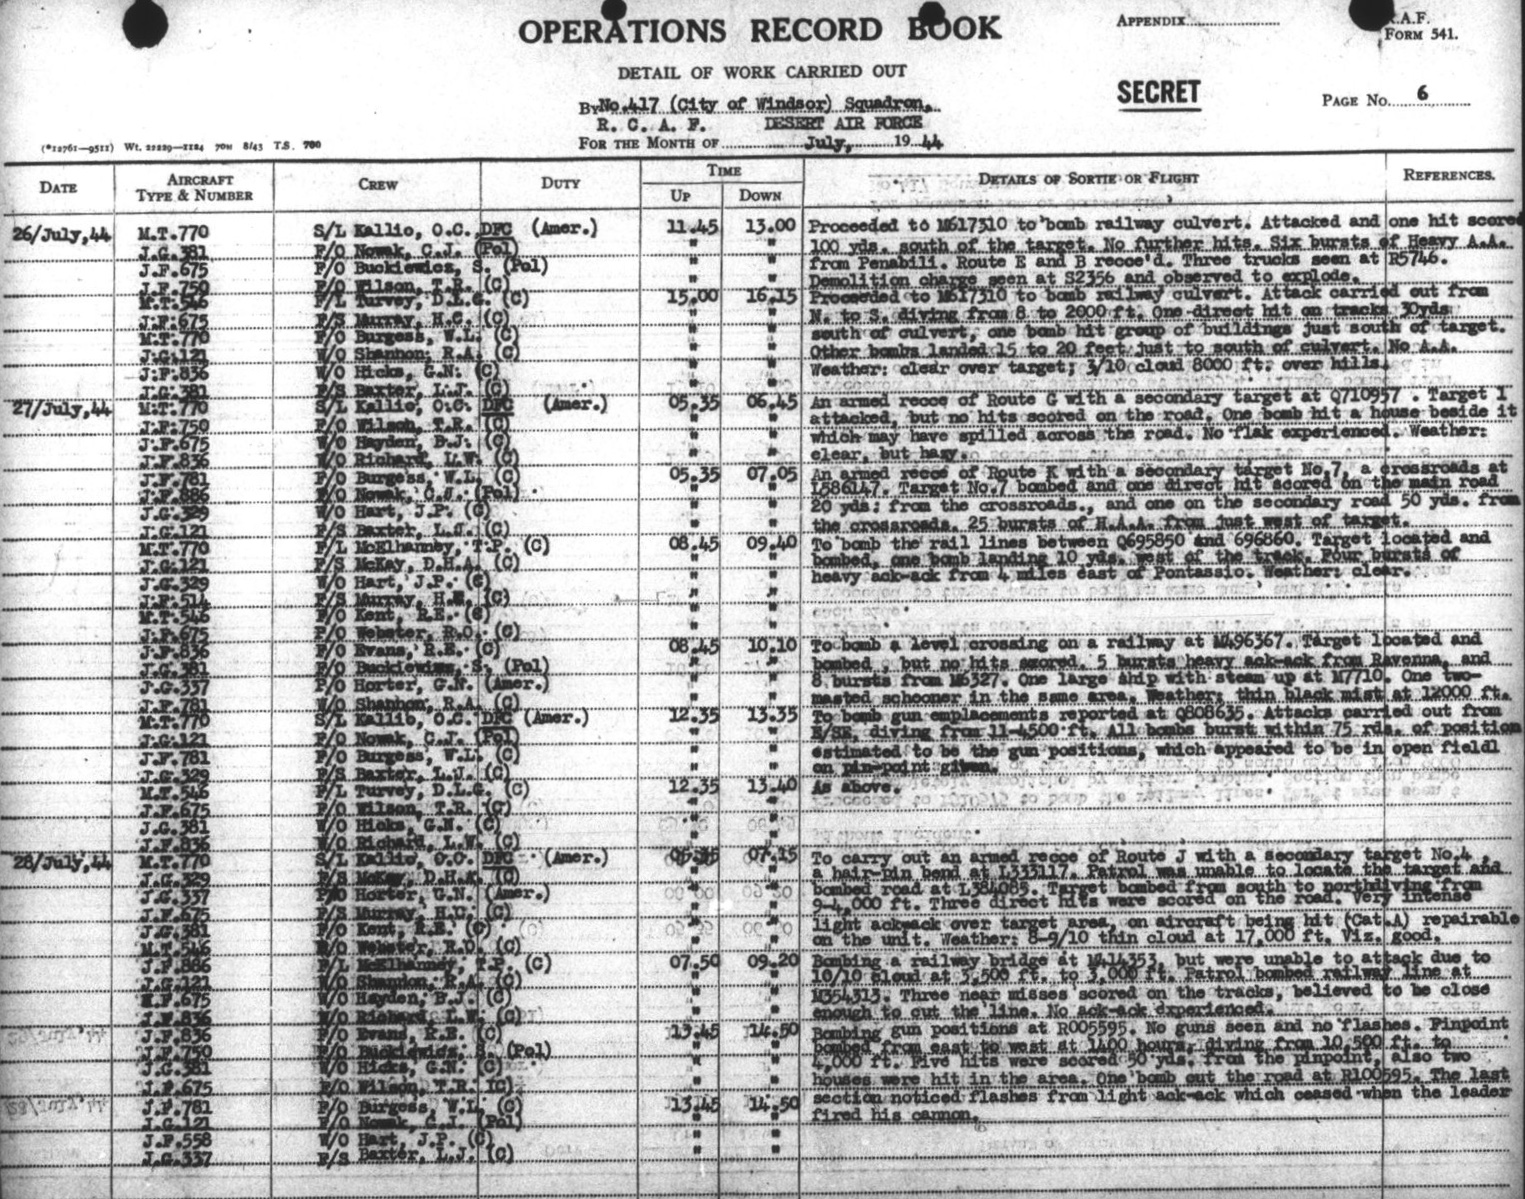 OPERATIONS RECORD BOOK
APPENDIX
R.A.F.
FORM 541.
DETAIL OF WORK CARRIED OUT
By No.417 (City of Windsor) Squadron,
R. C. A. F. DESERT AIR FORCE
FOR THE MONTH OF July, 1944
SECRET
PAGE No. 6
(*12761—9511) Wt. 22229—1124 70M 8/43 T.S. 700
DATE AIRCRAFT TYPE & NUMBER CREW DUTY TIME UP DOWN DETAILS OF SORTIE OR FLIGHT REFERENCES.
26/July,44 M.T.770 S/L Kallio, O.C. DFC (Amer.) 11.45 13.00 Proceeded to M617310 to bomb railway culvert. Attacked and one hit scored
J.G.381 F/O Nowak, C.J. (Pol) " " 100 yds. south of the target. No further hits. Six bursts of Heavy A.A.
J.F.675 F/O Buckiewicz, S. (Pol) " " from Penabili. Route E and B recce'd. Three trucks seen at R5746.
J.F.750 F/O Wilson, T.R. (C) " " Demolition charge seen at S2356 and observed to explode.
M.T.546 F/L Turvey, D.L.G. (C) 15.00 16.15 Proceeded to M617310 to bomb railway culvert. Attack carried out from
J.F.675 F/S Murray, H.C. (C) " " N. to S. diving from 8 to 2000 ft. One direct hit on tracks 30yds
M.T.770 F/O Burgess, W.L. (C) " " south of culvert, one bomb hit group of buildings just south of target.
J.G.121 W/O Shannon, R.A. (C) " " Other bombs landed 15 to 20 feet just to south of culvert. No A.A.
J.F.836 W/O Hicks, G.N. (C) " " Weather: clear over target; 3/10 cloud 8000 ft. over hills.
J.G.381 F/S Baxter, L.J. (C) " "
27/July,44 M.T.770 S/L Kallio, O.C. DFC (Amer.) 05.35 06.45 An armed recce of Route G with a secondary target at Q710957 . Target 1
J.F.750 F/O Wilson, T.R. (C) " " attacked, but no hits scored on the road. One bomb hit a house beside it
J.F.675 W/O Hayden, B.J. (C) " " which may have spilled across the road. No flak experienced. Weather:
J.F.836 W/O Richard, L.W. (C) " " clear, but hazy.
J.F.781 F/O Burgess, W.L. (C) 05.35 07.05 An armed recce of Route K with a secondary target No.7, a crossroads at
J.F.886 F/O Nowak, C.J. (Pol) " " L586147. Target No.7 bombed and one direct hit scored on the main road
J.G.329 W/O Hart, J.P. (C) " " 20 yds. from the crossroads., and one on the secondary road 50 yds. from
J.G.121 F/S Baxter, L.J. (C) " " the crossroads. 25 bursts of H.A.A. from just west of target.
M.T.770 F/L McElhanney, T.P. (C) 08.45 09.40 To bomb the rail lines between Q695850 and 696860. Target located and
J.G.121 F/S McKay, D.H.A. (C) " " bombed, one bomb landing 10 yds. west of the track. Four bursts of
J.G.329 W/O Hart, J.P. (C) " " heavy ack-ack from 4 miles east of Pontassio. Weather: clear.
J.F.514 F/S Murray, H.E. (C) " "
M.T.546 F/O Kent, R.E. (C) " "
J.F.675 F/O Webster, R.O. (C) " "
J.F.836 F/O Evans, R.E. (C) 08.45 10.10 To bomb a level crossing on a railway at M496367. Target located and
J.G.381 F/O Buckiewicz, S. (Pol) " " bombed , but no hits scored. 5 bursts heavy ack-ack from Ravenna, and
J.G.337 F/O Horter, G.N. (Amer.) " " 8 bursts from M6327. One large ship with steam up at M7710. One two-
J.F.781 W/O Shannon, R.A. (C) " " masted schooner in the same area. Weather; thin black mist at 12000 ft.
M.T.770 S/L Kallio, O.C. DFC (Amer.) 12.35 13.35 To bomb gun emplacements reported at Q808635. Attacks carried out from
J.G.121 F/O Nowak, C.J. (Pol) " " E/SE, diving from 11-4500 ft. All bombs burst within 75 yds. of position
J.F.781 F/O Burgess, W.L. (C) " " estimated to be the gun positions, which appeared to be in open fieldl
J.G.329 F/S Baxter, L.J. (C) " " on pin-point given.
M.T.546 F/L Turvey, D.L.G. (C) 12.35 13.40 As above.
J.F.675 F/O Wilson, T.R. (C) " "
J.G.381 W/O Hicks, G.N. (C) " "
J.F.836 W/O Richard, L.W. (C) " "
28/July,44 M.T.770 S/L Kallio, O.C. DFC (Amer.) 07.15 To carry out an armed recce of Route J with a secondary target No.4 ,
J.G.329 F/S McKay, D.H.A. (C) " " a hair-pin bend at L333117. Patrol was unable to locate the target and
J.G.337 F/O Horter, G.N. (Amer.) " " bombed road at L384085. Target bombed from south to northdiving from
J.F.675 F/S Murray, H.C. (C) " " 9-4,000 ft. Three direct hits were scored on the road. Very intense
J.G.381 F/O Kent, R.E. (C) " " light ack-ack over target area, on aircraft being hit (Cat.A) repairable
M.T.546 Webster, R.O. (C) " " on the unit. Weather: 8-9/10 thin cloud at 17,000 ft. Viz. good.
J.F.886 F/L McElhanney, T.P. (C) 07.50 09.20 Bombing a railway bridge at M414353, but were unable to attack due to
J.G.121 W/O Shannon, R.A. (C) " " 10/10 cloud at 3,500 ft. to 3,000 ft. Patrol bombed railway line at
675 W/O Hayden, B.J. (C) " " M354313. Three near misses scored on the tracks, believed to be close
J.F.836 W/O Richard, L.W. (C) " " enough to cut the line. No ack-ack experienced.
J.F.836 F/O Evans, R.E. (C) 13.45 14.50 Bombing gun positions at R005595. No guns seen and no flashes. Pinpoint
J.F.750 F/O Buckiewicz, S. (Pol) " " bombed from east to west at 1400 hours, diving from 10,500 ft. to
J.G.381 W/O Hicks, G.N. (C) " " 4,000 ft. Five hits were scored 50 yds. from the pinpoint, also two
J.F.675 F/O Wilson, T.R. (C) " " houses were hit in the area. One bomb cut the road at R100595. The last
J.F.781 F/O Burgess, W.L. (C) 13.45 14.50 section noticed flashes from light ack-ack which ceased when the leader
J.G.121 F/O Nowak, C.J. (Pol) " " fired his cannon.
J.F.558 W/O Hart, J.P. (C) " "
J.G.337 F/S Baxter, L.J. (C) " "